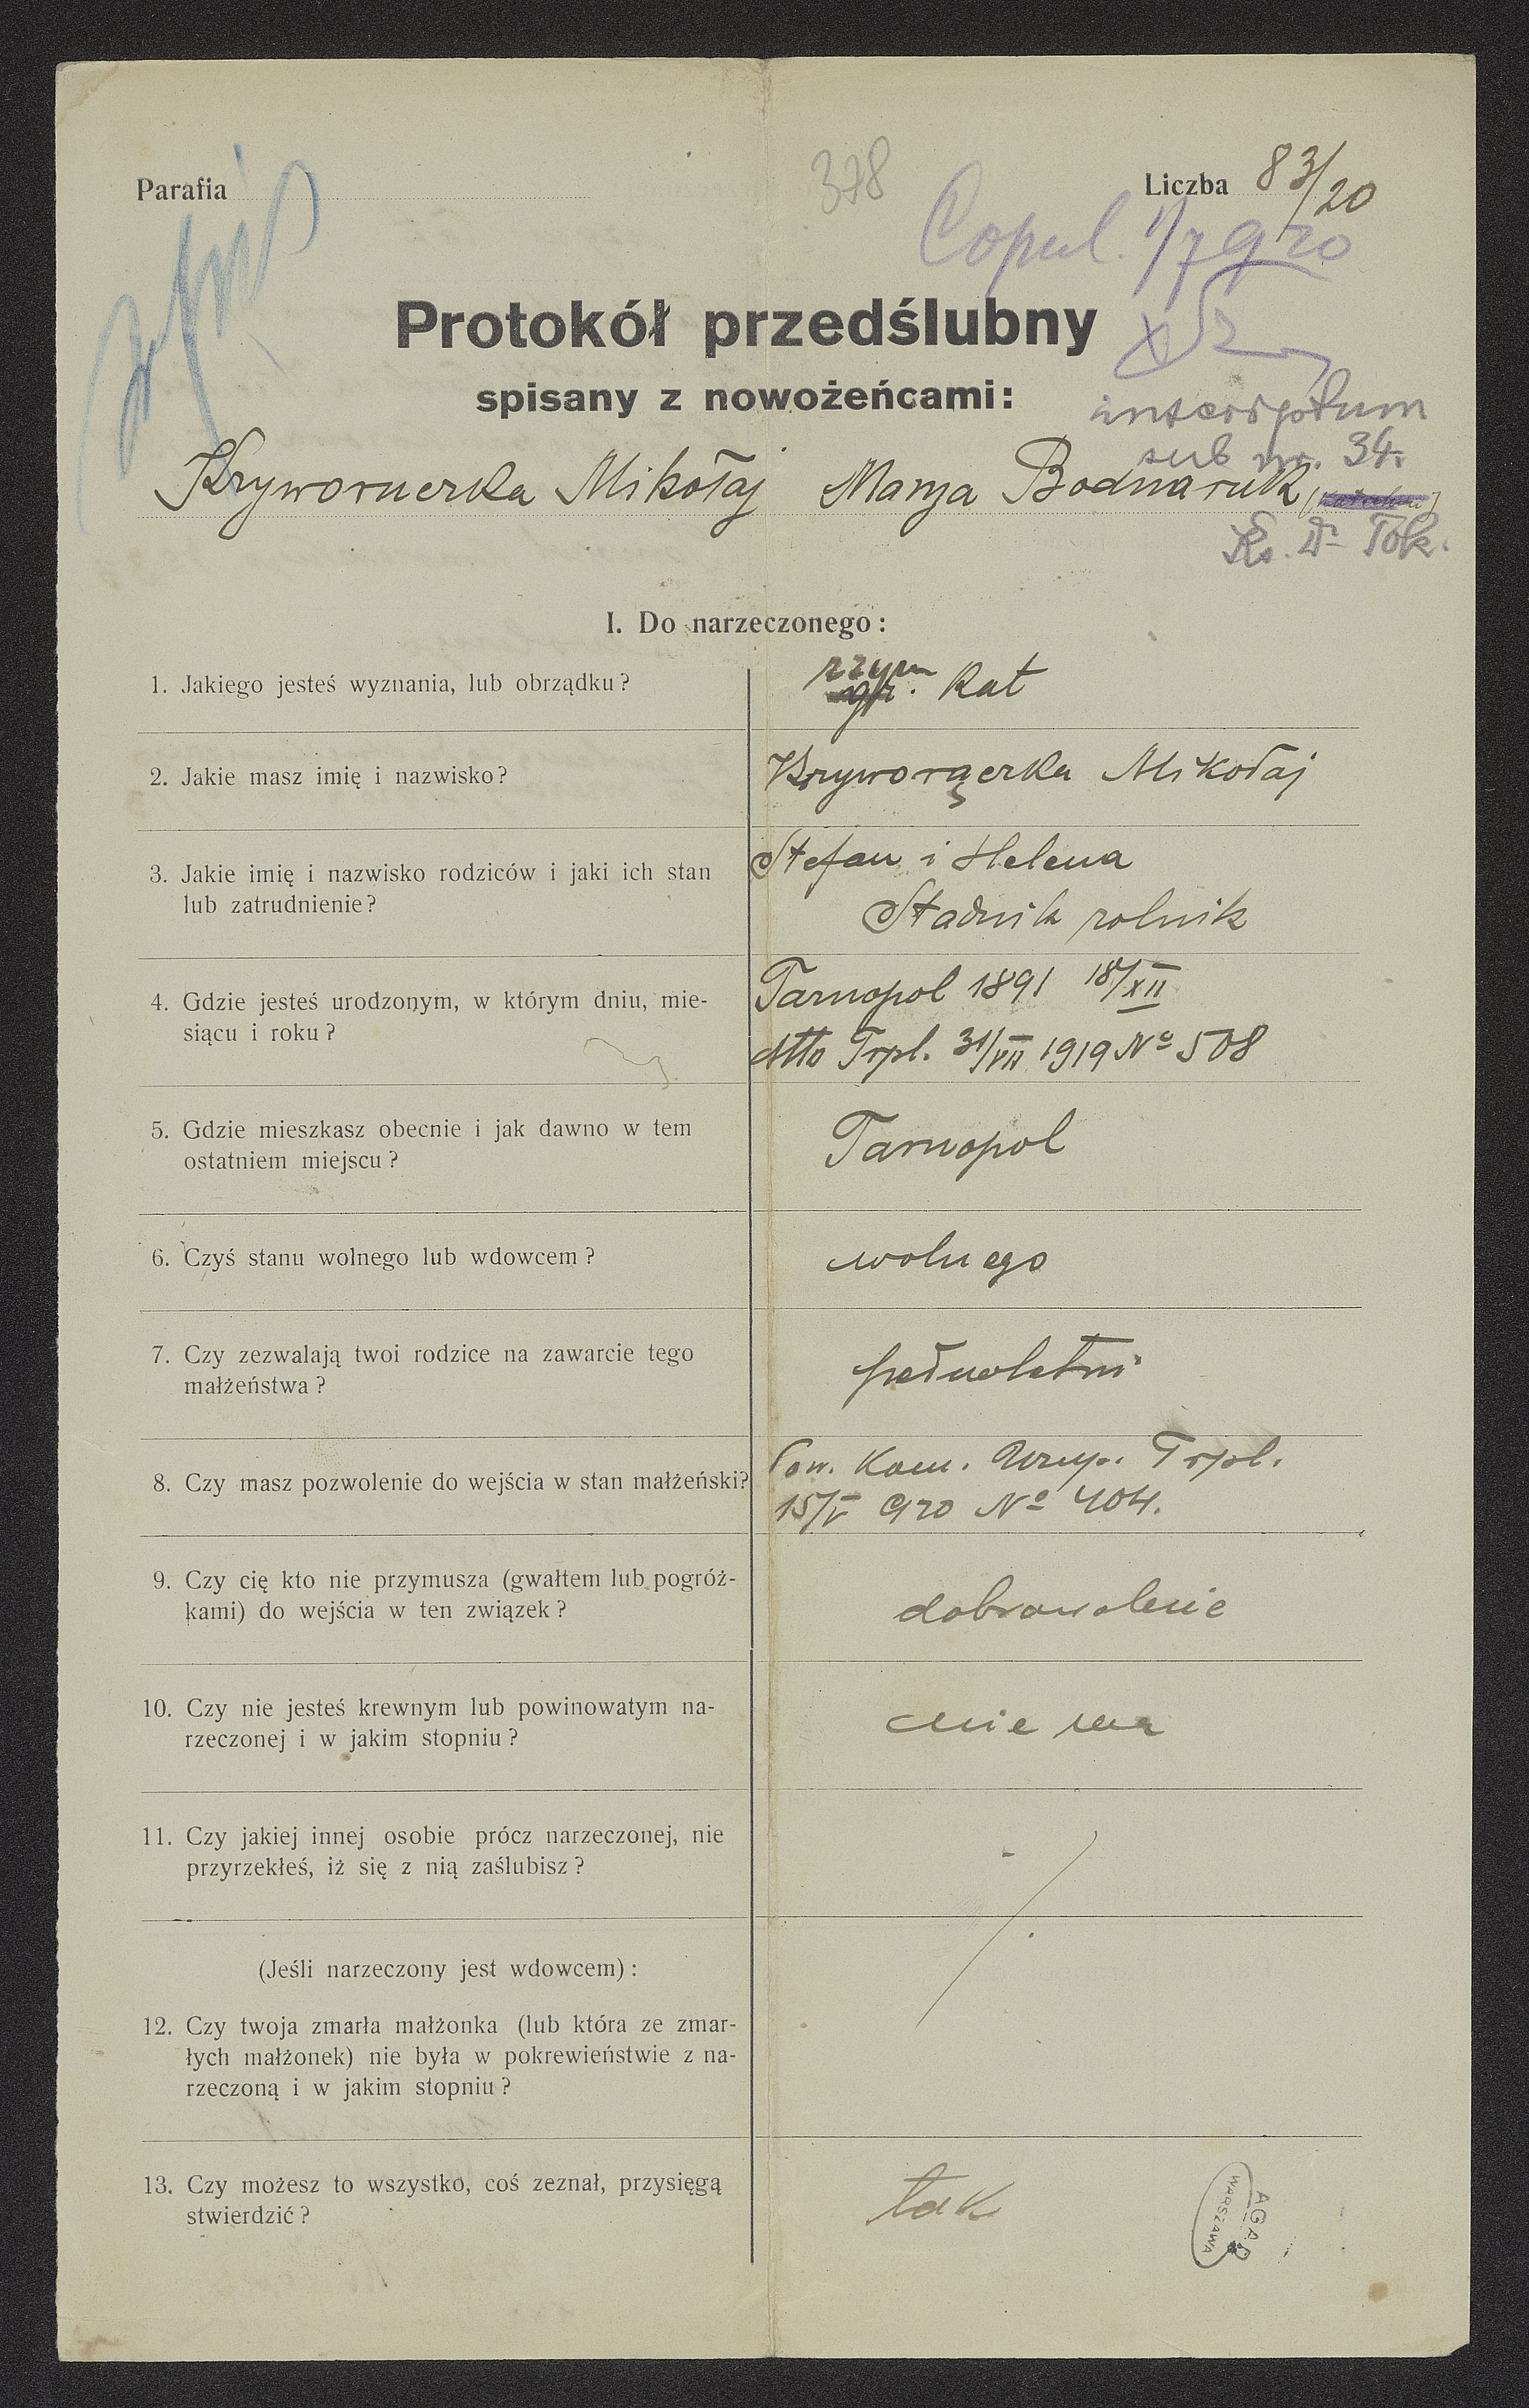 Parafia
378
Liczba 83/20
Copul. 1/7 920
Protokół przedślubny
spisany z nowożeńcami:
sub nr. 34.
Kryworuerka Mikołaj Marya Bodnaruk
Ks. Dr
I. Do narzeczonego:
1. Jakiego jesteś wyznania, lub obrządku?
rzym
gr. kat
2. Jakie masz imię i nazwisko?
Mikołaj
3. Jakie imię i nazwisko rodziców i jaki ich stan
lub zatrudnienie?
Stefan i Helena
Stadnik rolnik
4. Gdzie jesteś urodzonym, w którym dniu, mie-
siącu i roku?
Tarnopol 1891 18/XII
dtto Trpl. 31/VII 1919 No 508
5. Gdzie mieszkasz obecnie i jak dawno w tem
ostatniem miejscu?
Tarnopol
6. Czyś stanu wolnego lub wdowcem?
wolnego
7. Czy zezwalają twoi rodzice na zawarcie tego
małżeństwa?
pełnoletni
8. Czy masz pozwolenie do wejścia w stan małżeński?
Pow. Kom. Uzup. Trpl.
15/V 920 No 404.
9. Czy cię kto nie przymusza (gwałtem lub pogróż-
kami) do wejścia w ten związek?
dobrowolenie
10. Czy nie jesteś krewnym lub powinowatym na-
rzeczonej i w jakim stopniu?
nie ma
11. Czy jakiej innej osobie prócz narzeczonej, nie
przyrzekłeś, iż się z nią zaślubisz?
(Jeśli narzeczony jest wdowcem):
12. Czy twoja zmarła małżonka (lub która ze zmar-
łych małżonek) nie była w pokrewieństwie z na-
rzeczoną i w jakim stopniu?
13. Czy możesz to wszystko, coś zeznał, przysięgą
stwierdzić?
tak
AGAD
WARSZAWA